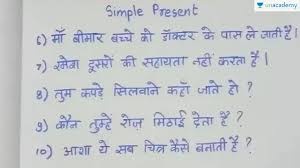 unacademy
Simple Present
6) माँ बीमार बच्चे को डॉक्टर के पास ले जाती है।
7) रमेश दूसरों की सहायता नहीं करता है।
8) तुम कपड़े सिलवाने कहाँ जाते हो ?
9) कौन तुम्हें रोज़ मिठाई देता है ?
10) आशा ये सब चित्र कैसे बनाती है ?